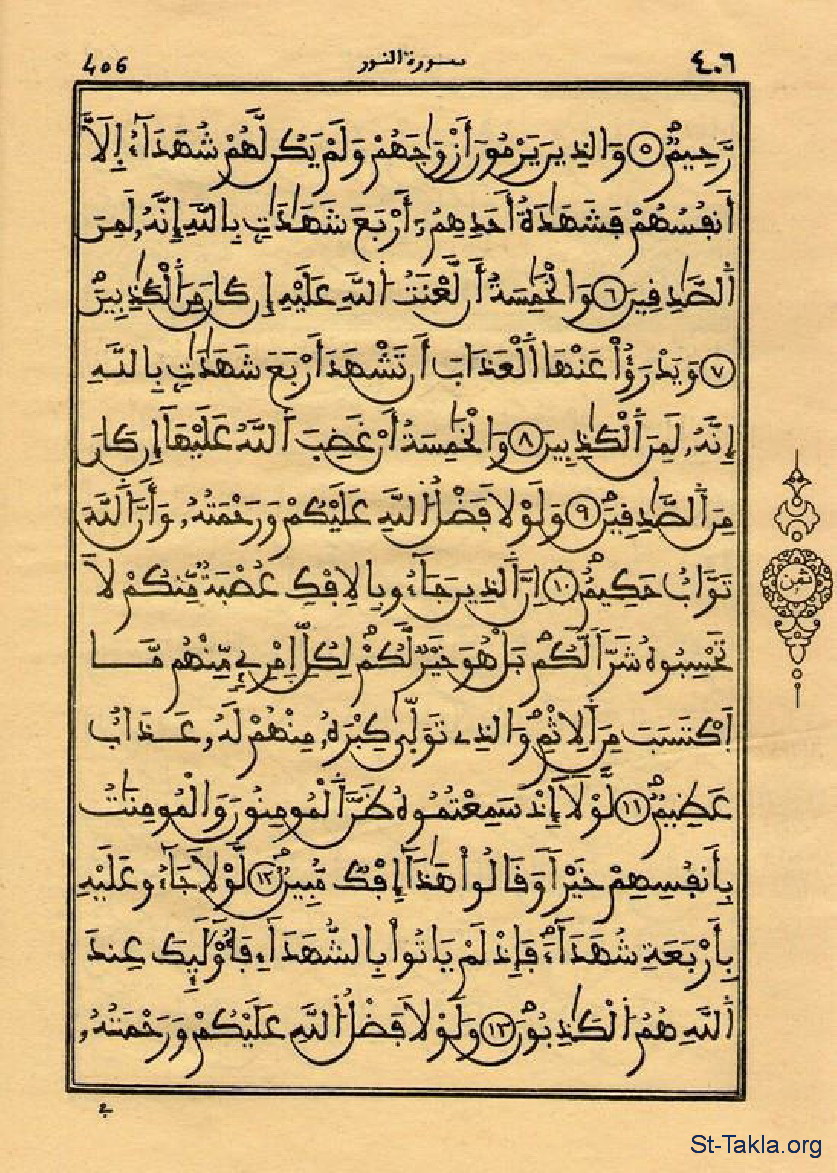 406 سورة النور ٤٠٦
رَّحِيمٌ ٥ وَالذِينَ يَرْمُونَ أَزْوَٰجَهُمْ وَلَمْ يَكُن لَّهُمْ شُهَدَآءُ اِلَّآ
أَنفُسُهُمْ فَشَهَٰدَةُ أَحَدِهِمُۥٓ أَرْبَعَ شَهَٰدَٰتِۭ بِاللَّهِ إِنَّهُۥ لَمِنَ
اَلصَّٰدِقِينَ ٦ وَالْخَٰمِسَةُ أَن لَّعْنَتُ اُللَّهِ عَلَيْهِ إِن كَانَ مِنَ اَلْكَٰذِبِينَ
٧ وَيَدْرَؤُاْ عَنْهَا اَلْعَذَابَ أَن تَشْهَدَ أَرْبَعَ شَهَٰدَٰتِۭ بِاللَّهِ
إِنَّهُۥ لَمِنَ اَلْكَٰذِبِينَ ٨ وَالْخَٰمِسَةُ أَنْ غَضِبَ اَللَّهُ عَلَيْهَآ إِن كَانَ
مِنَ اَلصَّٰدِقِينَ ٩ وَلَوْلَا فَضْلُ اُللَّهِ عَلَيْكُمْ وَرَحْمَتُهُۥ وَأَنَّ اَللَّهَ
تَوَّابٌ حَكِيمٌ ١٠ اِنَّ اَلذِينَ جَآءُو بِالِافْكِ عُصْبَةٌ مِّنكُمْ لَا
تَحْسِبُوهُ شَرّاً لَّكُم بَلْ هُوَ خَيْرٌ لَّكُمْ لِكُلِّ اِمْرِےٕ مِّنْهُم مَّا
اَكْتَسَبَ مِنَ اَلِاثْمِ وَالذِے تَوَلَّىٰ كِبْرَهُۥ مِنْهُمْ لَهُۥ عَذَابٌ
عَظِيمٌ ١١ لَّوْلَآ إِذْ سَمِعْتُمُوهُ ظَنَّ اَلْمُومِنُونَ وَالْمُومِنَٰتُ
بِأَنفُسِهِمْ خَيْراً وَقَالُواْ هَٰذَآ إِفْكٌ مُّبِينٌ ١٢ لَّوْلَا جَآءُو عَلَيْهِ
بِأَرْبَعَةِ شُهَدَآءَ فَإِذْ لَمْ يَاتُواْ بِالشُّهَدَآءِ فَأُوْلَٰٓئِكَ عِندَ
اَللَّهِ هُمُ اُلْكَٰذِبُونَ ١٣ وَلَوْلَا فَضْلُ اُللَّهِ عَلَيْكُمْ وَرَحْمَتُهُۥ
ثمن
St-Takla.org